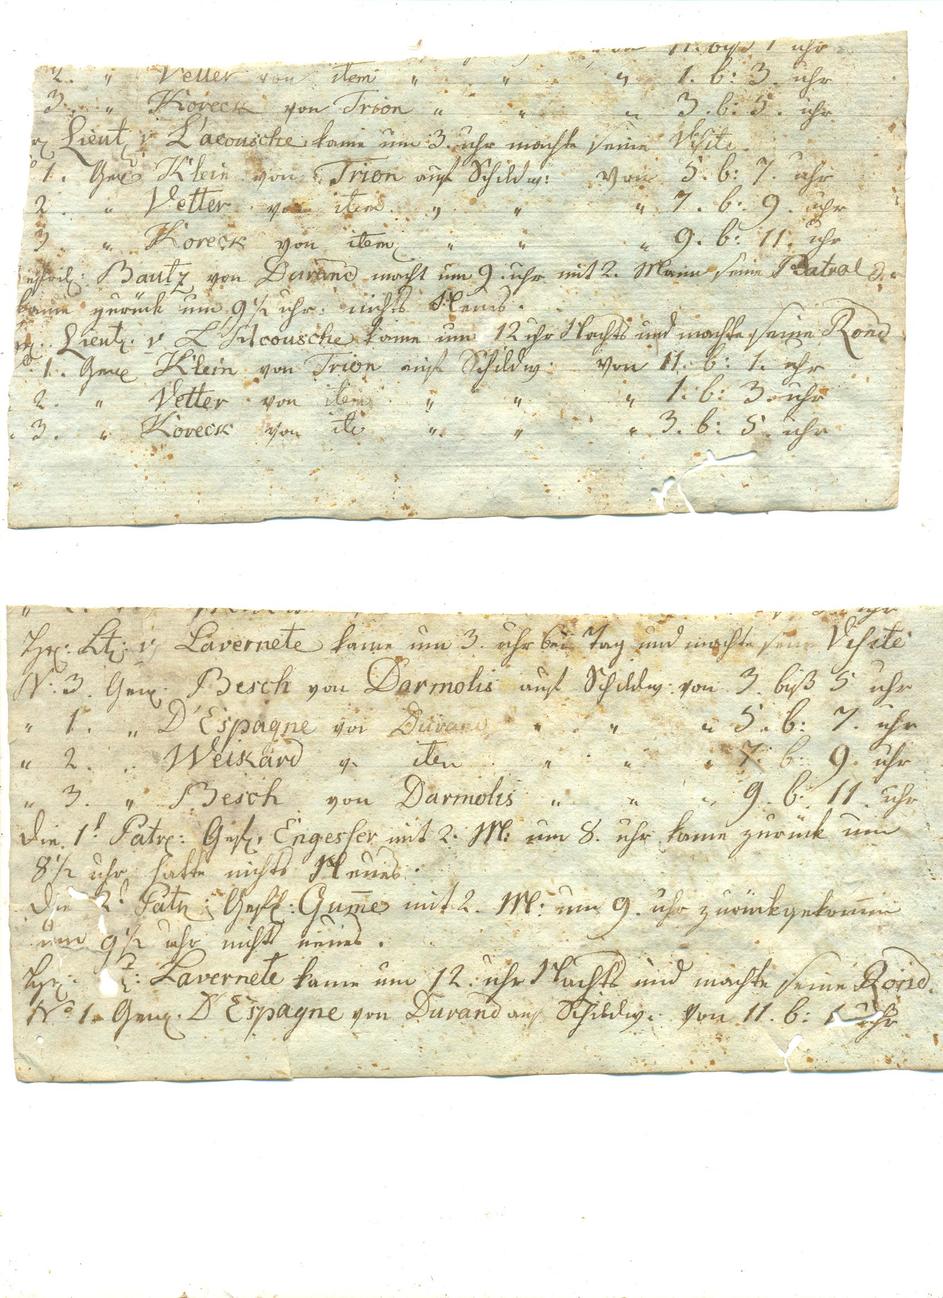 11. biß 1 uhr
2. " Vetter von item " " " 1. b: 3. uhr
3. " Koreck von Trion " " " 3. b: 5. uhr
Lieut. v. L'acousche kame um 3. uhr machte seine Visite.
1. Gem. Klein von Trion auf Schildw: von 5. b: 7. uhr
2. " Vetter von item " " " 7. b: 9. uhr
3 " Koreck von item " " " 9. b: 11. uhr
Bautz von Durand macht um 9. uhr mit 2. Mann seine Patrol
kame zurück um 9 1/2 uhr. nichts Neues.
Lieut. v. L'Acousche kame um 12 uhr Nachts und machte seine Rond
1. Gem. Klein von Trion auf Schildw: von 11. b: 1. uhr
2. " Vetter von item " " " 1. b: 3. uhr
3. " Koreck von ite " " " 3. b: 5. uhr
uhr
Hr: Lt: v. Lavernete kame um 3. uhr bei Tag und machte sein Visite
N: 3. Gem. Besch von Darmolis auf Schildw. von 3. biß 5 uhr
" 1. " D'Espagne von Durand " " " 5. b: 7. uhr
" 2. " Weikard v. item " " " 7. b: 9. uhr
" 3. " Besch von Darmolis " " " 9. b: 11. uhr
Die 1t Patr: Gefr. Engesser mit 2. M: um 8. uhr kame zurück um
8 1/2 uhr hatte nichts Neues.
Die 2t Patr: Gefr: Gum̅e mit 2. M: um 9. uhr zurückgekom̅en
um 9 1/2 uhr nicht neues.
Hr: Lavernete kame um 12. uhr Nachts und machte seine Rond.
No 1. Gem. D'Espagne von Durand auf Schildw: von 11. b: 1 uhr